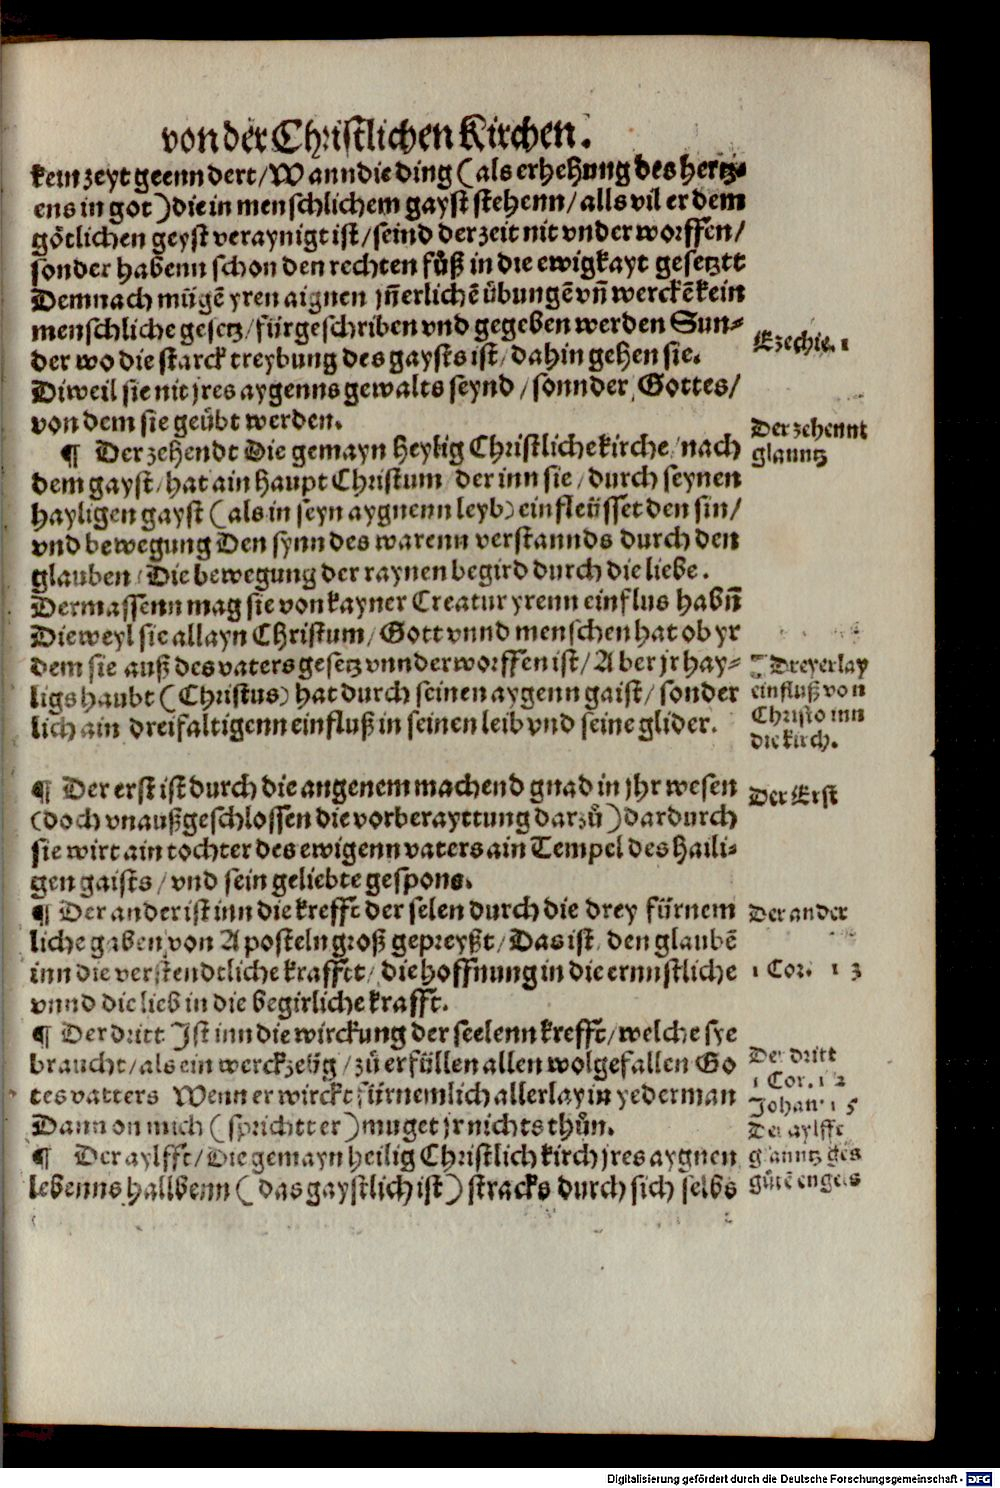 von der Christlichen Kirchen.
kein zeyt geenndert/ Wann die ding (als erhehung des hertz⸗
ens in got) die in menschlichem gayst stehenn/ alls vil er dem
götlichen geyst veraynigt ist/ seind der zeit nit vnderworffen/
sonder habenn schon den rechten fůß in die ewigkayt gesetztt
Demnach mügē yren aignen jn̄erlichē übungē vn̄ werckē kein
menschliche gesetz/ fürgeschriben vnd gegeben werden Sun⸗
der wo die starck treybung des gaysts ist/ dahin gehen sie.
Ezechie. 1
Diweil sie nit jres aygenns gewalts seynd/ sonnder/ Gottes/
von dem sie geübt werden.
¶ Der zehendt Die gemayn heylig Christliche kirche/ nach
Der zehennt
glanntz
dem gayst/ hat ain haupt Christum/ der inn sie/ durch seynen
hayligen gayst (als in seyn aygnenn leyb) einfleüsset den sin/
vnd bewegung Den synn des warenn verstannds durch den
glauben/ Die bewegung der raynen begird durch die liebe.
Dermassenn mag sie von kayner Creatur yrenn einflus habn̄
Dieweyl sie allayn Christum/ Gott vnnd menschen hat ob yr
dem sie auß des vaters gesetz vnnderworffen ist/ Aber jr hay⸗
ligs haubt (Christus) hat durch seinen aygenn gaist/ sonder
lich ain dreifaltigenn einfluß in seinen leib vnd seine glider.
Dreyerlay
einfluß von
Christo inn
die kirch.
¶ Der erst ist durch die angenem machend gnad in jhr wesen
Der Erst
(doch vnaußgeschlossen die vorberayttung darzů) dardurch
sie wirt ain tochter des ewigenn vaters ain Tempel des haili⸗
gen gaists/ vnd sein geliebte gespons.
¶ Der ander ist inn die krefft der selen durch die drey fürnem
Der ander
liche gaben/ von Aposteln groß gepreyßt/ Das ist/ den glaubē
inn die verstendtliche krafftt/ die hoffnung in die ernnstliche
1 Cor. 1 3
vnnd die lieb in die begirliche krafft.
¶ Der dritt Ist inn die wirckung der seelenn krefft/ welche sye
braucht/ als ein werckzeüg/ zů erfüllen allen wolgefallen Go
Der dritt
1 Cor. 1 2
tes vatters Wenn er wirckt fürnemlich allerlay in yederman
Johan. 1 5
Dann on mich (sprichtt er) muget jr nichts thůn.
¶ Der aylfft/ Die gemayn heilig Christlich kirch jres aygnen
Der aylfft
glanntz des
lebenns hallbenn (das gaystlich ist) stracks durch sich selbs
gůtē engels
Digitalisierung gefördert durch die Deutsche Forschungsgemeinschaft - DFG